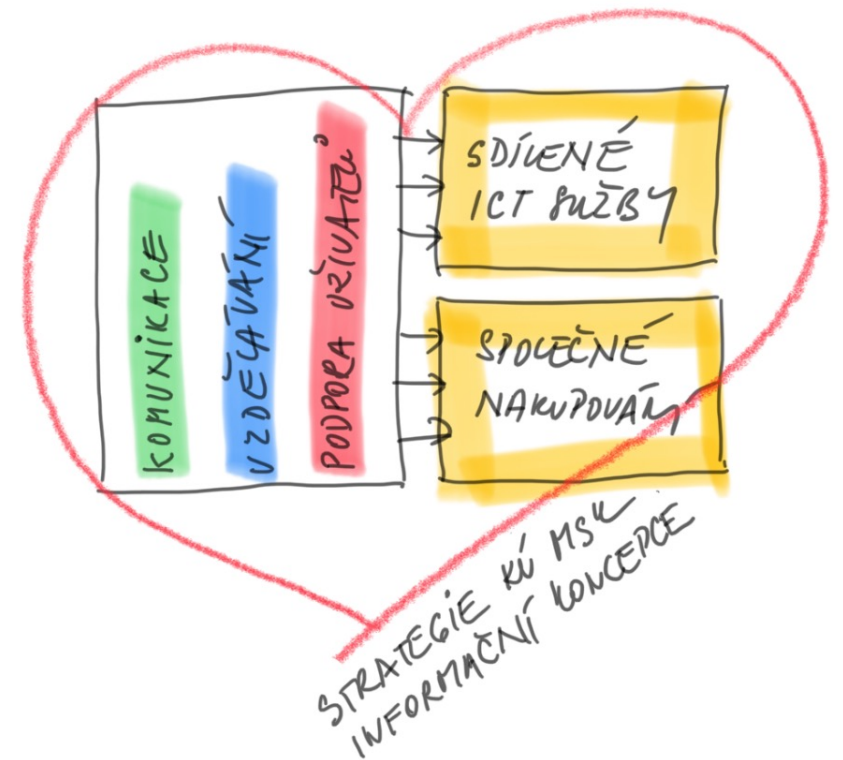 KOMUNIKACE
VZDĚLÁVÁNÍ
PODPORA UŽIVATELŮ
SDÍLENÉ
ICT SLUŽBY
SPOLEČNÉ
NAKUPOVÁNÍ
STRATEGIE KÚ MSK
INFORMAČNÍ KONCEPCE